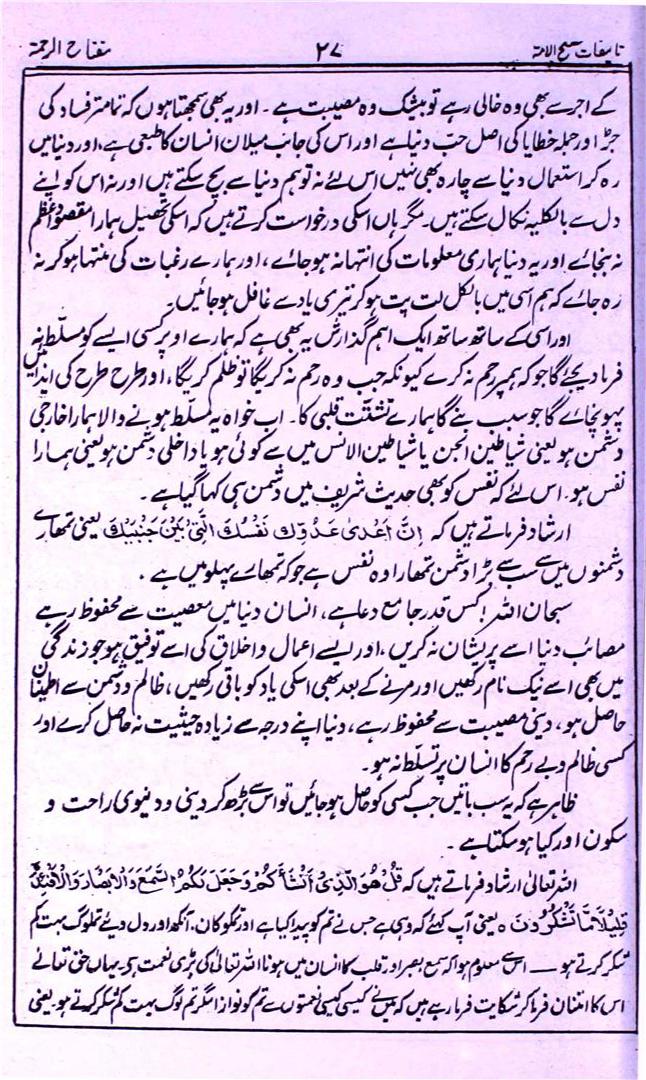 تالیفات مصلح الامۃ ۲۷ مفتاح الرحمۃ
کے اجر سے بھی وہ خالی رہے تو بیشک وہ مصیبت ہے ۔ اور یہ بھی سمجھتا ہوں کہ تمامتر فساد کی
جڑ اور جملہ خطایا کی اصل حب دنیا ہے اور اس کی جانب میلان انسان کا طبعی ہے، اور دنیا میں
رہ کر استعمال دنیا سے چارہ بھی نہیں اس لئے نہ تو ہم دنیا سے بچ سکتے ہیں اور نہ اس کو اپنے
دل سے بالکلیہ نکال سکتے ہیں۔ مگر ہاں اسکی درخواست کرتے ہیں کہ اسکی تحصیل ہمارا مقصود اعظم
نہ بنجائے اور یہ دنیا ہماری معلومات کی انتہا نہ ہو جائے ، اور ہمارے رغبات کی منتہا ہو کر نہ
رہ جائے کہ ہم اسی میں بالکل لت پت ہو کر تیری یاد سے غافل ہو جائیں۔
اور اسی کے ساتھ ساتھ ایک اہم گذارش یہ بھی ہے کہ ہمارے اوپر کسی ایسے کو مسلّط نہ
فرما دیجئے گا جو کہ ہمپر رحم نہ کرے کیونکہ جب وہ رحم نہ کریگا تو ظلم کریگا، اور طرح طرح کی ایذائیں
پہونچائے گا جو سبب بنے گا ہمارے تشتّت قلبی کا۔ اب خواہ یہ مسلّط ہونے والا ہمارا خارجی
دشمن ہو یعنی شیاطین الجن یا شیاطین الانس میں سے کوئی ہو یا داخلی دشمن ہو یعنی ہمارا
نفس ہو۔ اس لئے کہ نفس کو بھی حدیث شریف میں دشمن ہی کہا گیا ہے ۔
ارشاد فرماتے ہیں کہ اِنَّ اَعْدیٰ عَدُوِّكَ نَفْسُكَ الَّتِیْ بَیْنَ جَنْبَیْكَ یعنی تمھارے
دشمنوں میں سے سب سے بڑا دشمن تمھارا وہ نفس ہے جو کہ تمھارے پہلو میں ہے ۔
سبحان اللہ ! کس قدر جامع دعا ہے، انسان دنیا میں معصیت سے محفوظ رہے
مصائب دنیا اسے پریشان نہ کریں ، اور ایسے اعمال و اخلاق کی اسے توفیق ہو جو زندگی
میں بھی اسے نیک نام رکھیں اور مرنے کے بعد بھی اسکی یاد کو باقی رکھیں ، ظالم و دشمن سے اطینان
حاصل ہو ، دینی مصیبت سے محفوظ رہے، دنیا اپنے درجہ سے زیادہ حیثیت نہ حاصل کرے اور
کسی ظالم و بے رحم کا انسان پر تسلّط نہ ہو۔
ظاہر ہے کہ یہ سب باتیں جب کسی کو حاصل ہو جائیں تو اس سے بڑھ کر دینی و دنیوی راحت و
سکون اور کیا ہو سکتا ہے ۔
اللہ تعالیٰ ارشاد فرماتے ہیں کہ قُلْ هُوَ الَّذِیْ اَنْشَأَ كُمْ وَجَعَلَ لَكُمُ السَّمْعَ وَالْاَبْصَارَ وَالْاَفْئِدَةَ
قَلِیْلًا مَّا تَشْكُرُوْنَ ہ یعنی آپ کہئے کہ وہی ہے جس نے تم کو پیدا کیا ہے اور تمکو کان، آنکھ اور دل دیئے تم لوگ بہت کم
شکر کرتے ہو — اس سے معلوم ہوا کہ سمع بصر اور قلب کا انسان میں ہونا اللہ تعالیٰ کی بڑی نعمت ہی۔ یہاں حق تعالےٰ
اس کا امتنان فرما کر شکایت فرما رہے ہیں کہ میں نے کیسی کیسی نعمتوں سے تم کو نوازا مگر تم لوگ بہت کم شکر کرتے ہو یعنی